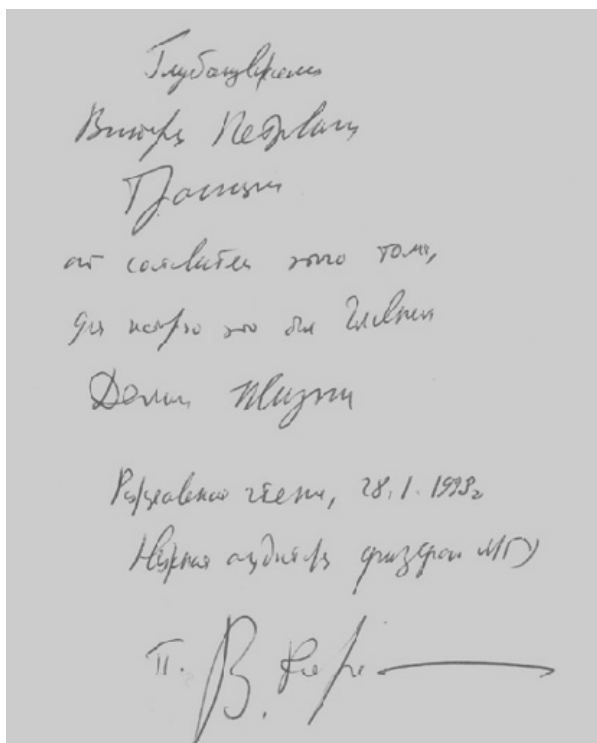 Глубокоуважаемому
Виктору Петровичу
от составителя этого тома,
для которого это был Главным
Делом Жизни
Рождественские чтения, 28.1.1998г
Нижняя аудитория физфака МГУ
П. В.